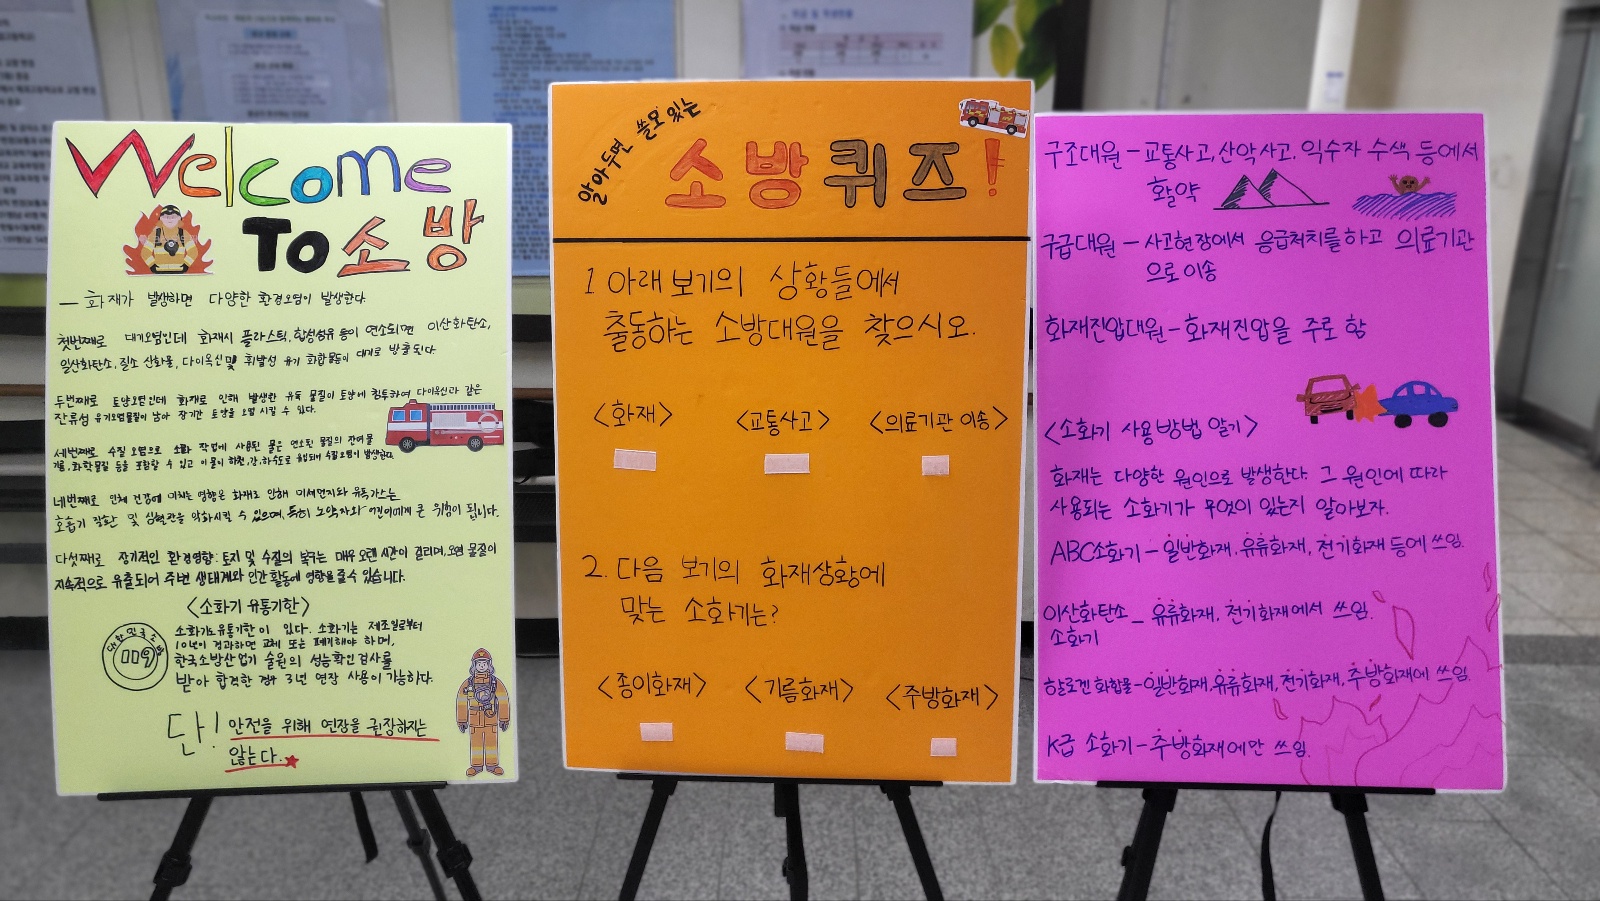 Welcome
TO 소방
- 화재가 발생하면 다양한 환경오염이 발생한다
첫번째로 대기오염인데 화재시 플라스틱, 합성섬유 등이 연소되면 이산화탄소,
일산화탄소, 질소 산화물, 다이옥신 및 휘발성 유기 화합물등이 대기로 방출된다.
두번째로 토양오염인데 화재로 인해 발생한 유독 물질이 토양에 침투하여 다이옥신과 같은
잔류성 유기오염물질이 남아 장기간 토양을 오염 시킬 수 있다.
세번째로 수질 오염으로 소화 작업에 사용된 물은 연소된 물질의 잔여물
기름, 화학물질 등을 포함할 수 있고 이물이 하천, 강, 하수도로 유입되어 수질오염이 발생한다.
네번째로 인체 건강에 미치는 영향은 화재로 인해 미세먼지와 유독가스는
호흡기 질환 및 심혈관을 악화시킬 수 있으며, 특히 노약자와 어린이에게 큰 위험이 됩니다.
다섯째로 장기적인 환경영향: 토지 및 수질의 복구는 매우 오랜 시간이 걸리며, 오염 물질이
지속적으로 유출되어 주변 생태계와 인간 활동에 영향을 줄 수 있습니다.
<소화기 유통기한>
소화기도 유통기한이 있다. 소화기는 제조일로부터
10년이 경과하면 교체 또는 폐기해야 하며,
한국소방산업기술원의 성능확인 검사를
받아 합격한 경우 3년 연장 사용이 가능하다.
대한민국소방
119
단! 안전을 위해 연장을 권장하지는
않는다.
알아두면 쓸모 있는
소방 퀴즈!
1 아래 보기의 상황들에서
출동하는 소방대원을 찾으시오.
<화재> <교통사고> <의료기관 이송>
2. 다음 보기의 화재상황에
맞는 소화기는?
<종이화재> <기름화재> <주방화재>
구조대원 - 교통사고, 산악사고, 익수자 수색 등에서
활약
구급대원 - 사고현장에서 응급처치를 하고 의료기관
으로 이송
화재진압대원 - 화재진압을 주로 함
<소화기 사용방법 알기>
화재는 다양한 원인으로 발생한다. 그 원인에 따라
사용되는 소화기가 무엇이 있는지 알아보자.
ABC소화기 - 일반화재, 유류화재, 전기화재 등에 쓰임.
이산화탄소 - 유류화재, 전기화재에서 쓰임.
소화기
하로겐 화합물 - 일반화재, 유류화재, 전기화재, 주방화재에 쓰임.
K급 소화기 - 주방화재에만 쓰임.